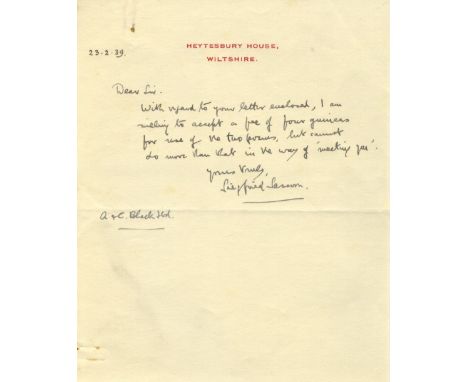 HEYTESBURY HOUSE,
WILTSHIRE.
23-2-39.
Dear Sir.
With regard to your letter enclosed, I am
willing to accept a fee of four guineas
for use of the two poems, but cannot
do more than that in the way of 'meeting you'.
Yours truly,
Siegfried Sassoon.
A & C. Black Ltd.